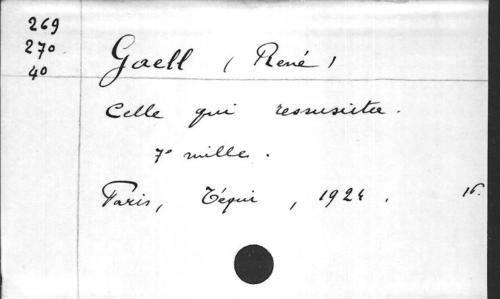 269
270
40
Gaell (René)
Celle qui ressuscita.
7e mille.
Paris, Téqui, 1924. 16.